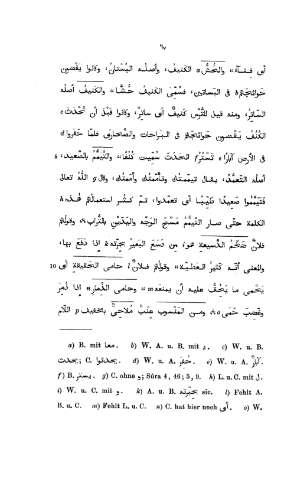 ٩٠
أى فِضّة» والحُشّ الكنيف، وأصله البستان، وكانوا يقضون
حوائجهم فى البساتين، فسُمِّى الكنيف حُشًّا» والكنيف أصله
الساتر، ومنه قيل للتُّرس كنيف أى ساتر، وكانوا قبل أن تُحْدَث
الكُنُف يقضون حوائجهم فى البراحات والصَّحارَى فلمّا حفروا
فى الأرض آبارًا تستر الحدث سُمِّيت كُنُفًا» والتَّيمُّم بالصَّعيد،
أصله التعمُّد، يقال تيمّمتك وتأمّمتك وأممتك، قال الله تعالى
فتَيَمَّمُوا صَعِيدًا طَيِّبًا أى تعمّدوا، ثم كثر استعمالهم هذه
الكلمة حتى صار التيمُّم مسح الوجه واليدين بالتراب» وقولهم
فلان ضخم الدَّسيعة هو من دسع البعير بجِرَّته إذا دفع بها،
والمعنى أنّه كثير العطيّة» وقولهم فلان حامى الحقيقة أى 10
يحمى ما يحقّ عليه أن يمنعه» وحامى الذِّمار إذا ذُمِر
وغضب حمى» ومن المنسوب عنب مُلاحِىّ بتخفيف اللام
a) B. mit معا. b) W. A. u. B. mit د. c) W. u. B.
يحدث; C. يحدثوا. d) W. u. A. حفر. e) W. u. A. آبار.
f) B. يستر. g) C. ohne و; Sûra 4, 46; 5, 9. h) L. u. C. mit ل.
i) W. u. C. mit و. k) A. u. B. بجيرته sic. l) Fehlt A.
B. u. C. m) Fehlt L. u. C. n) C. hat hier noch أى. o) W.